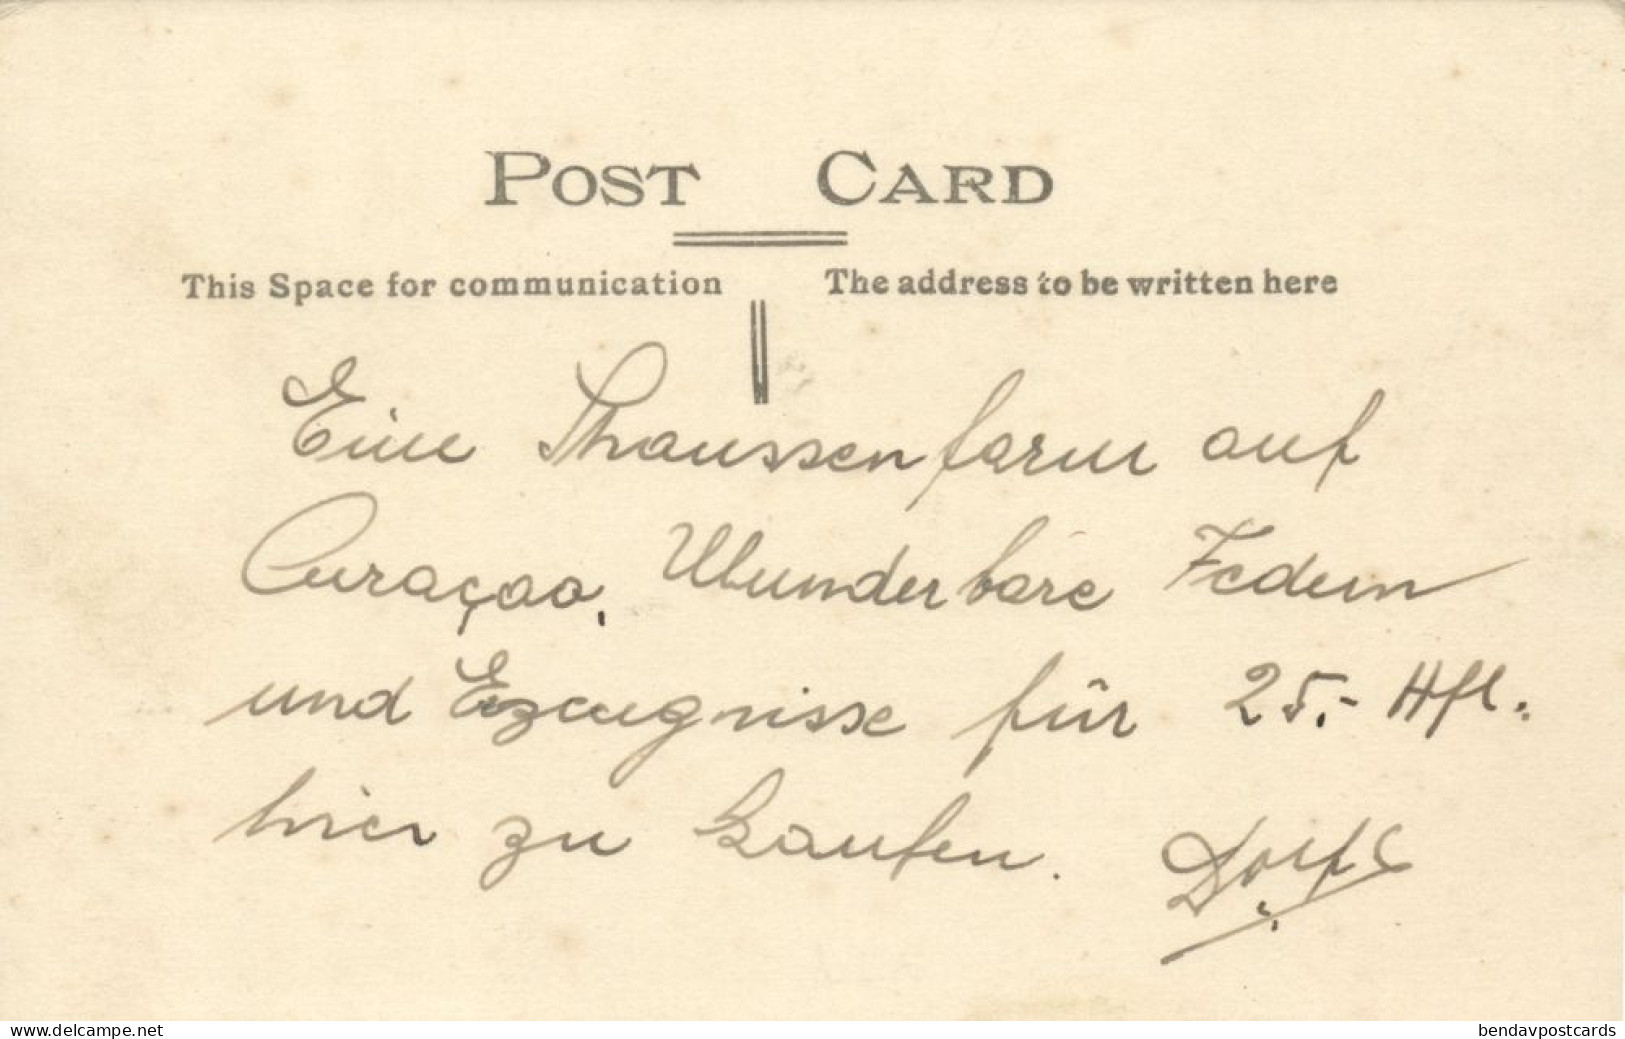 POST CARD
This Space for communication
The address to be written here
Eine Straussenfarm auf
Curaçao. Wunderbare Federn
und Erzeugnisse für 25.- Hfl.
hier zu kaufen.
www.delcampe.net
bendavpostcards